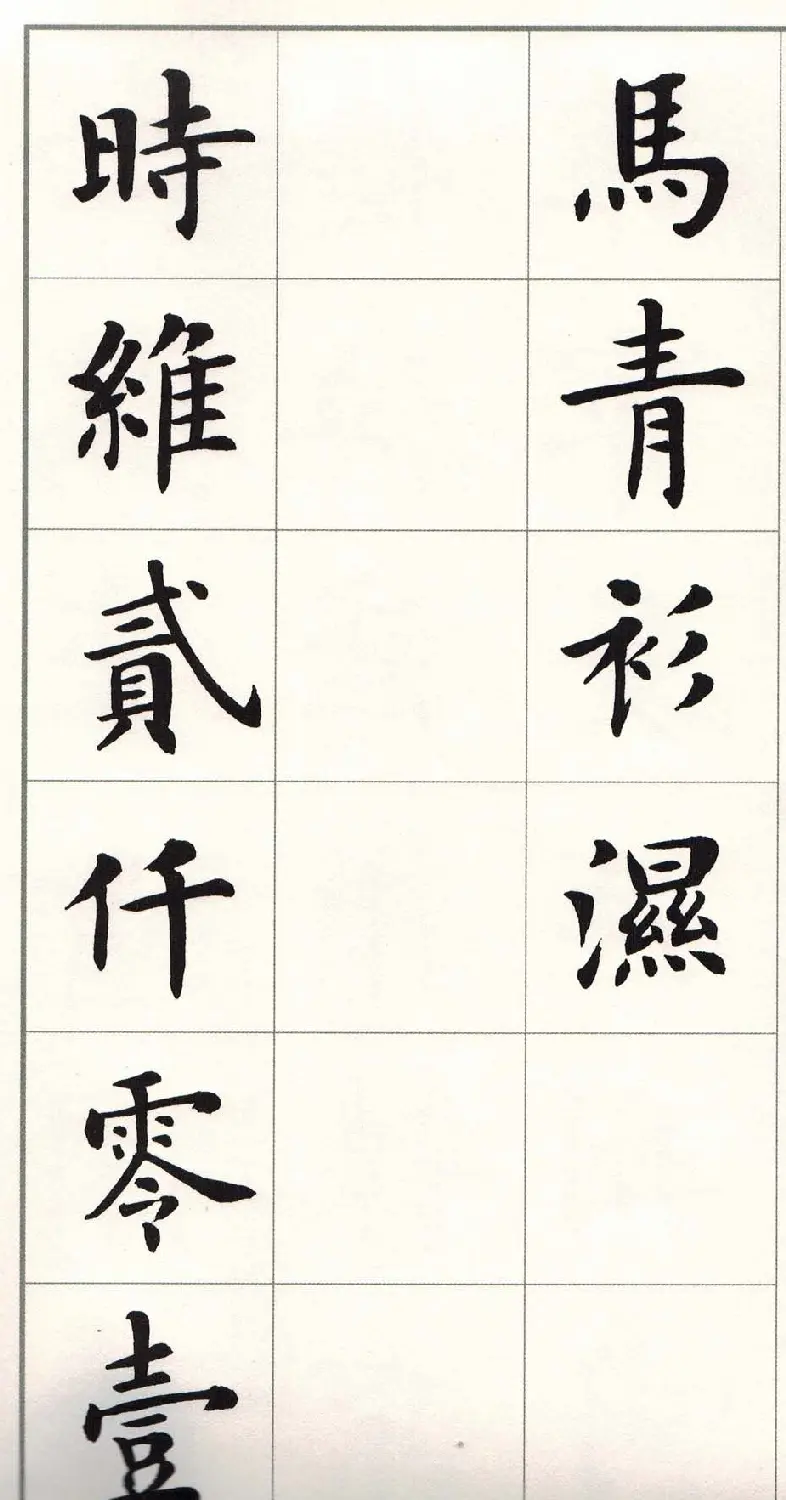 馬青衫濕
時維貳仟零壹